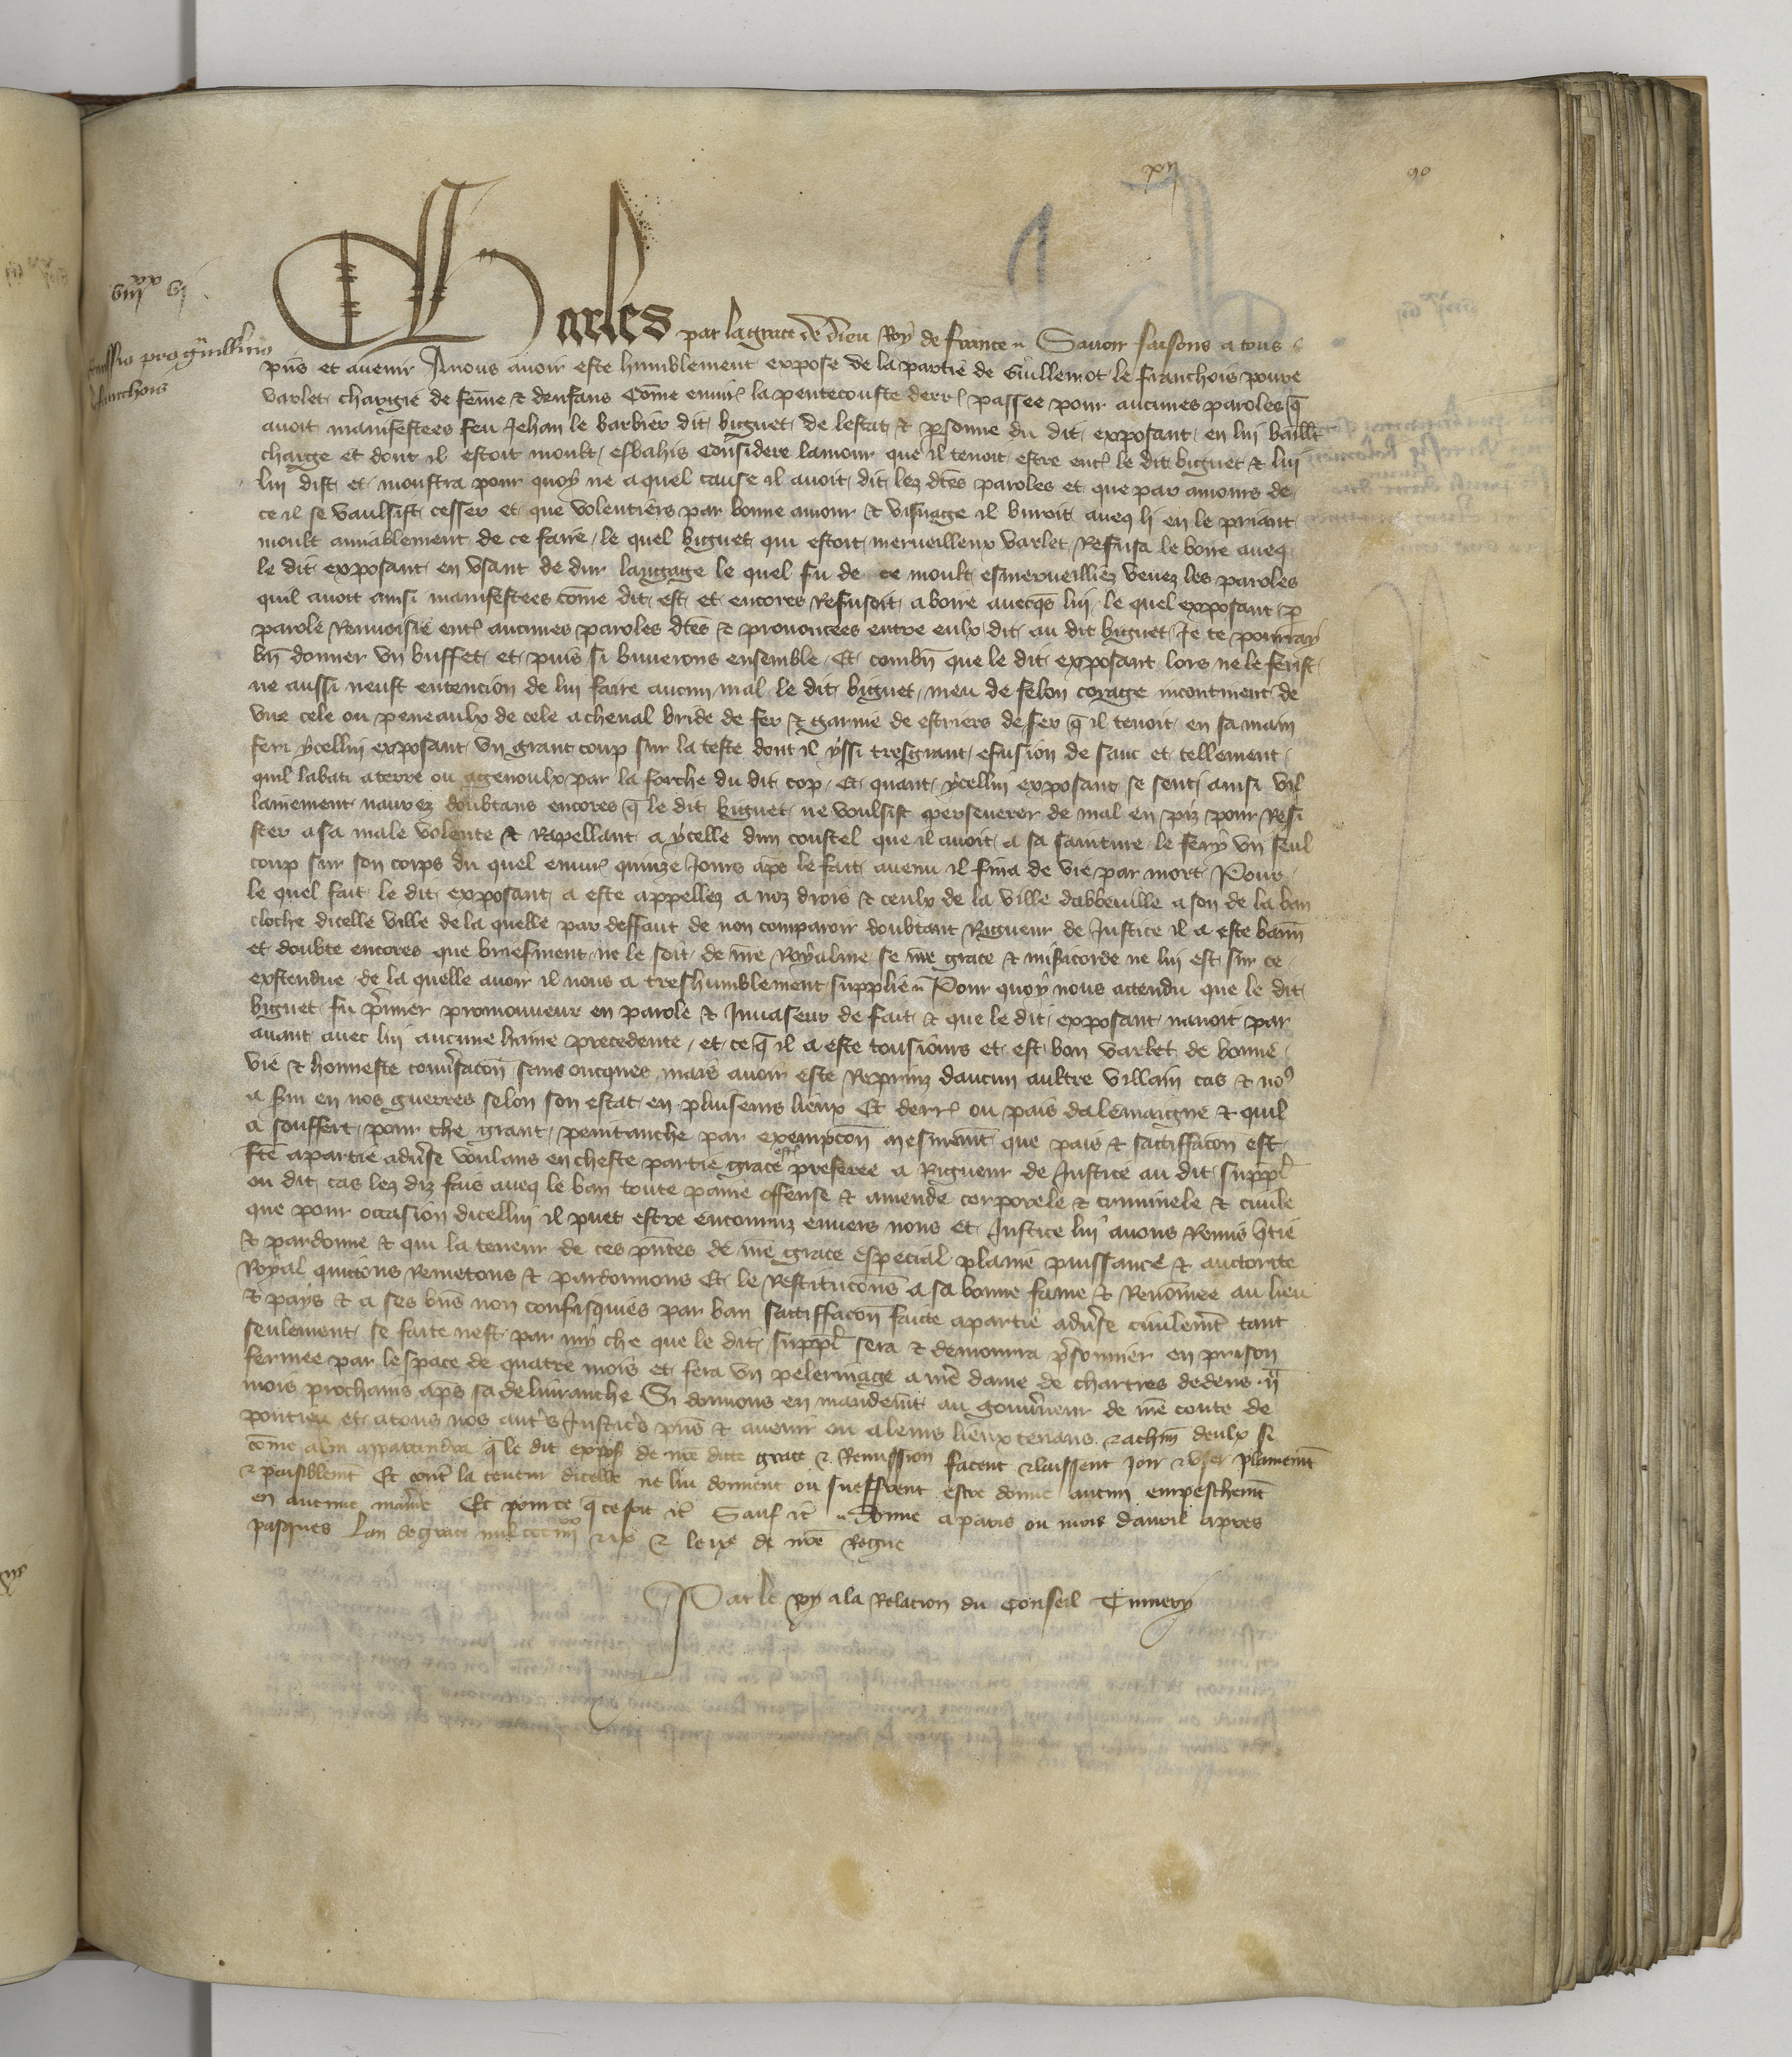 xij
90
viijxx vj
Remissio pro Guillermo
le franchois
Charles par la grace de dieu Roy de france Savoir faisons a tous
pns et avenir A nous avoir este humblement expose de la partie de Guillemot le franchois povre
varlet chargie de feme & denfans Come envir la penthecouste derr passee pour aucunes paroles q
avoit manifestees feu Jehan le barbier dit biguet de lestat & psonne du dit exposant en lui baillt
charge et dont il estoit moult esbahis Considere lamour que il tenoit estre ent le dit biguet & lui
lui dist et monstra pour quoy ne a quel cause il avoit dit lez dtes paroles et que par amours de
ce il se vaulsist cesser et que volentiers par bonne amour & visnage il buroit aveq li en le priant
moult amiablement de ce faire le quel biguet qui estoit merveilleux varlet Refusa le boire aveq
le dit exposant en usant de dur langage le quel fu de ce moult esmerveilliez venez les paroles
quil avoit ainsi manifestees come dit est et encores Refusoit a boire avecqs lui le quel exposant p
parole Renvoisie ent aucunes paroles dtes & prononcees entre eulx dit au dit biguet Je te pourray
bn donner un buffet et puis si buverons ensemble Et combn que le dit exposant lors ne le ferist
ne aussi neust entencion de lui faire aucun mal le dit biguet meu de felon corage incontinent de
une cele ou peneaulx de cele a cheval bride de fer & garnie de estriers de fer q il tenoit en sa main
feri ycellui exposant un grant coup sur la teste dont il yssi tresgrant efusion de sanc et tellement
quil labati a terre ou agenoulx par la forche du dit cop Et quant ycellui exposant se senti ainsi vil
lainement navrez doubtans encores q le dit biguet ne voulsist perseverer de mal en piz pour Resi
ster a sa male volente & Rapellant a ycelle dun coustel que il avoit a sa sainture le fery un seul
coup sur son corps du quel envir quinze Jours aps le fait avenu il fina de vie par mort Pour
le quel fait le dit exposant a este appellez a noz drois & ceulx de la ville dabbeville a son de la ban
cloche dicelle ville de la quelle par deffaut de non comparoir doubtant Rigueur de Justice il a este bann
et doubte encores que briefment ne le soit de nre Royalme se nre grace & misicorde ne lui est sur ce
exstendue de la quelle avoir il nous a treshumblement supplie Pour quoy nous attendu que le dit
biguet fu pmier promouveur en parole & Invaseur de fait & que le dit exposant navoit par
avant avec lui aucune haine precedente et ce q il a este tousiours et est bon varlet de bonne
vie & honneste convsacon sens oncques mais avoir este Reprinz daucun aultre villain cas & nos
a svi en nos guerres selon son estat en pluiseurs lieux Et derr ou pais dalemaigne & quil
a souffert pour che grant penitanche par exempcon mesmemt que pais & sattiffacon est
fte a partie advse voulans en cheste partie grace estre preferee a Rigueur de Justice au dit suppl
ou dit cas lez diz fais aveq le ban toute paine offense & amende corporele & criminele & civile
que pour occasion dicellui il puet estre encouruz envers nous et Justice lui avons Remis qtie
& pardonne & qui la teneur de ces pntes de nre grace especial plaine puissance & auctorite
Royal quittons Remetons & pardonnons Et le Restitucons a sa bonne fame & Renomee au lieu
& pays & a ses bns non confisquies par ban sattiffacon faicte a partie advse civilemt tant
seulement se faite nest par my che que le dit suppl sera & demourra psonnier en prison
fermee par lespace de quatre mois et fera un pelerinage a nre dame de chartres dedens ii
mois prochains aps sa delivranche Si donnons en mandemt au gouvneur de nre conte de
pontieu et a tous nos autrs Justicrs pns & avenir ou a leurs lieux tenans & a chm deulx si
come a lui appartendra q le dit expos de nre dicte grace & Remission facent & laissent Joir & user plainemt
& paisiblemt Et cont la teneur dicelle ne lui donnent ou sueffrent estre donne aucun empeschemt
en aucune manie Et pour ce q ce soit &c Sauf &c Donne a paris ou mois davril apres
pasques Lan de grace mil ccc iiijxx & ix & le ix de nre Regne
Par le Roy a la Relacion du Conseil